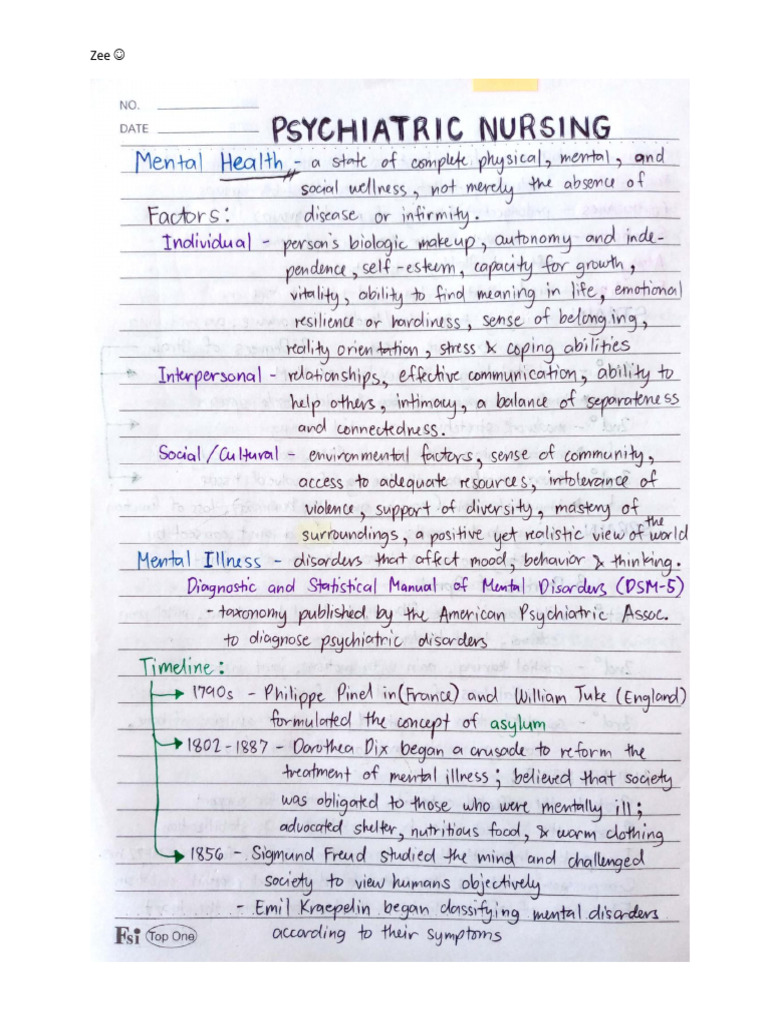 Zee ☺
NO.
DATE
PSYCHIATRIC NURSING
Mental Health - a state of complete physical, mental, and
social wellness, not merely the absence of
Factors: disease or infirmity.
Individual - person's biologic makeup, autonomy and inde-
pendence, self-esteem, capacity for growth,
vitality, ability to find meaning in life, emotional
resilience or hardiness, sense of belonging,
reality orientation, stress & coping abilities
Interpersonal - relationships, effective communication, ability to
help others, intimacy, a balance of separateness
and connectedness.
Social/Cultural - environmental factors, sense of community,
access to adequate resources, intolerance of
violence, support of diversity, mastery of
surroundings, a positive yet realistic view of the world
Mental Illness - disorders that affect mood, behavior & thinking.
Diagnostic and Statistical Manual of Mental Disorders (DSM-5)
- taxonomy published by the American Psychiatric Assoc.
to diagnose psychiatric disorders
Timeline:
1790s - Philippe Pinel in (France) and William Tuke (England)
formulated the concept of asylum
1802-1887 - Dorothea Dix began a crusade to reform the
treatment of mental illness; believed that society
was obligated to those who were mentally ill;
advocated shelter, nutritious food, & warm clothing
1856 - Sigmund Freud studied the mind and challenged
society to view humans objectively
- Emil Kraepelin began classifying mental disorders
according to their symptoms
Fsi Top One